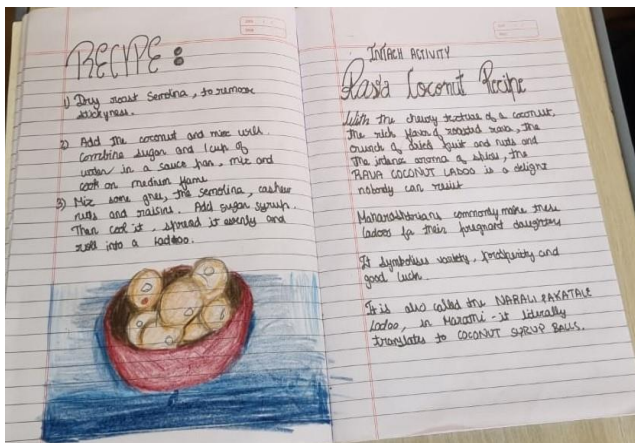 RECIPE :
1) Dry roast Semolina, to remove
stickyness.
2) Add the coconut and mix well.
Combine sugar and 1 cup of
water in a sauce pan, mix and
cook on medium flame
3) Mix some ghee, the semolina, cashew
nuts and raisins. Add sugar syrup.
Then cool it, spread it evenly and
roll into a laddoo.
INTACH ACTIVITY
Rava Coconut Recipe
With the chewy texture of a coconut,
the rich flavor of roasted rava, the
crunch of dried fruit and nuts and
the intense aroma of spices, the
RAVA COCONUT LADOO is a delight
nobody can resist
Maharashtrians commonly make these
ladoos for their pregnant daughters
It symbolises variety, prosperity and
good luck.
It is also called the NARALI PAKATALE
Ladoo, in Marathi - it literally
translates to COCONUT SYRUP BALLS.